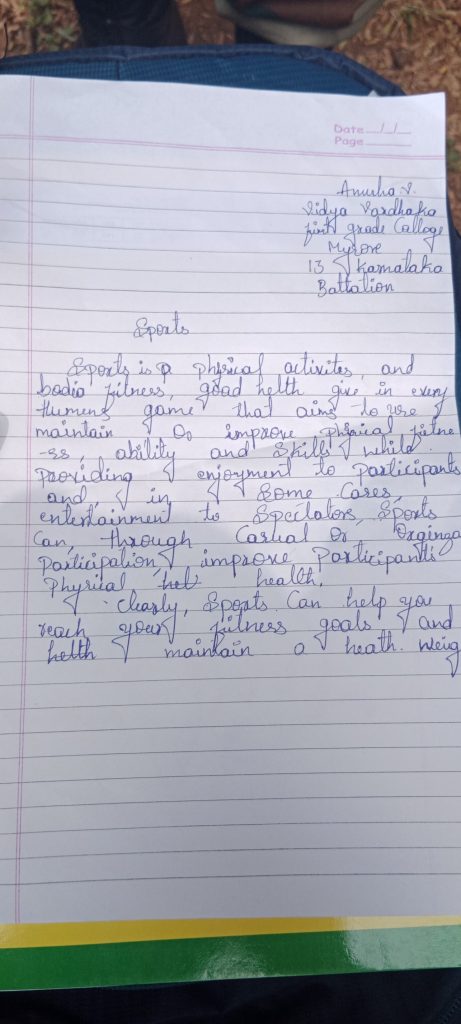 Date __/__/__
Page ______
Anusha V.
Vidya Vardhaka
first grade College
Mysore
13 Karnataka
Battalion
Sports
Sports is a physical activites, and
bodia fitness, good helth give in every
Humens game that aims to use
maintain Or improve physical fitne
-ss, ability and Skills while
Providing enjoyment to participants
and, in Some Cases,
entertainment to Spectators, Sports
Can, through Casual Or
Participation, improve Participants
Physical health,
clearly, Sports Can help you
reach your fitness goals and
maintain a heath. weig